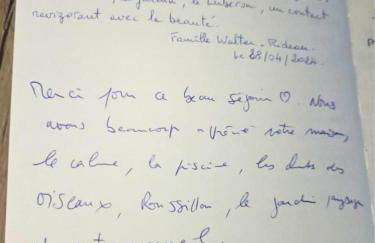 le Luberon, un contact
revigorant avec la beauté.
Famille Walter-Rideau
le 28/04/2024
Merci pour ce beau séjour ♡. Nous
avons beaucoup apprécié votre maison,
le calme, la piscine, les chants des
oiseaux, Roussillon, le jardin paysager